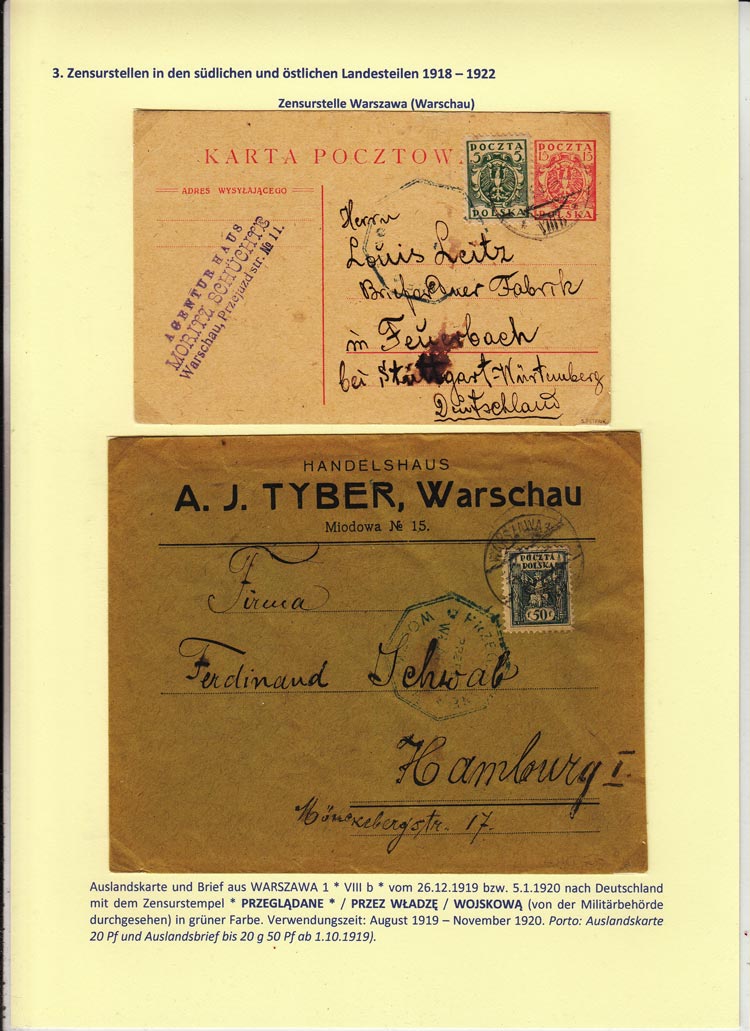 3. Zensurstellen in den südlichen und östlichen Landesteilen 1918 – 1922
Zensurstelle Warszawa (Warschau)
KARTA POCZTOW
ADRES WYSYŁAJĄCEGO
POCZTA
5 5
POLSKA
POCZTA
15 15
POLSKA
AGENTUR HAUS
MORITZ SCHÜCHTE
Warschau, Przejazd str. № 11.
Herrn
Louis Leitz
Briefordner Fabrik
in Feuerbach
bei Stuttgart-Würtemberg
Deutschland
HANDELSHAUS
A. J. TYBER, Warschau
Miodowa № 15.
POCZTA
POLSKA
50
Firma
Ferdinand Schwab
Hamburg I.
Mönckebergstr. 17.
Auslandskarte und Brief aus WARSZAWA 1 * VIII b * vom 26.12.1919 bzw. 5.1.1920 nach Deutschland
mit dem Zensurstempel * PRZEGLĄDANE * / PRZEZ WŁADZĘ / WOJSKOWĄ (von der Militärbehörde
durchgesehen) in grüner Farbe. Verwendungszeit: August 1919 – November 1920. Porto: Auslandskarte
20 Pf und Auslandsbrief bis 20 g 50 Pf ab 1.10.1919).